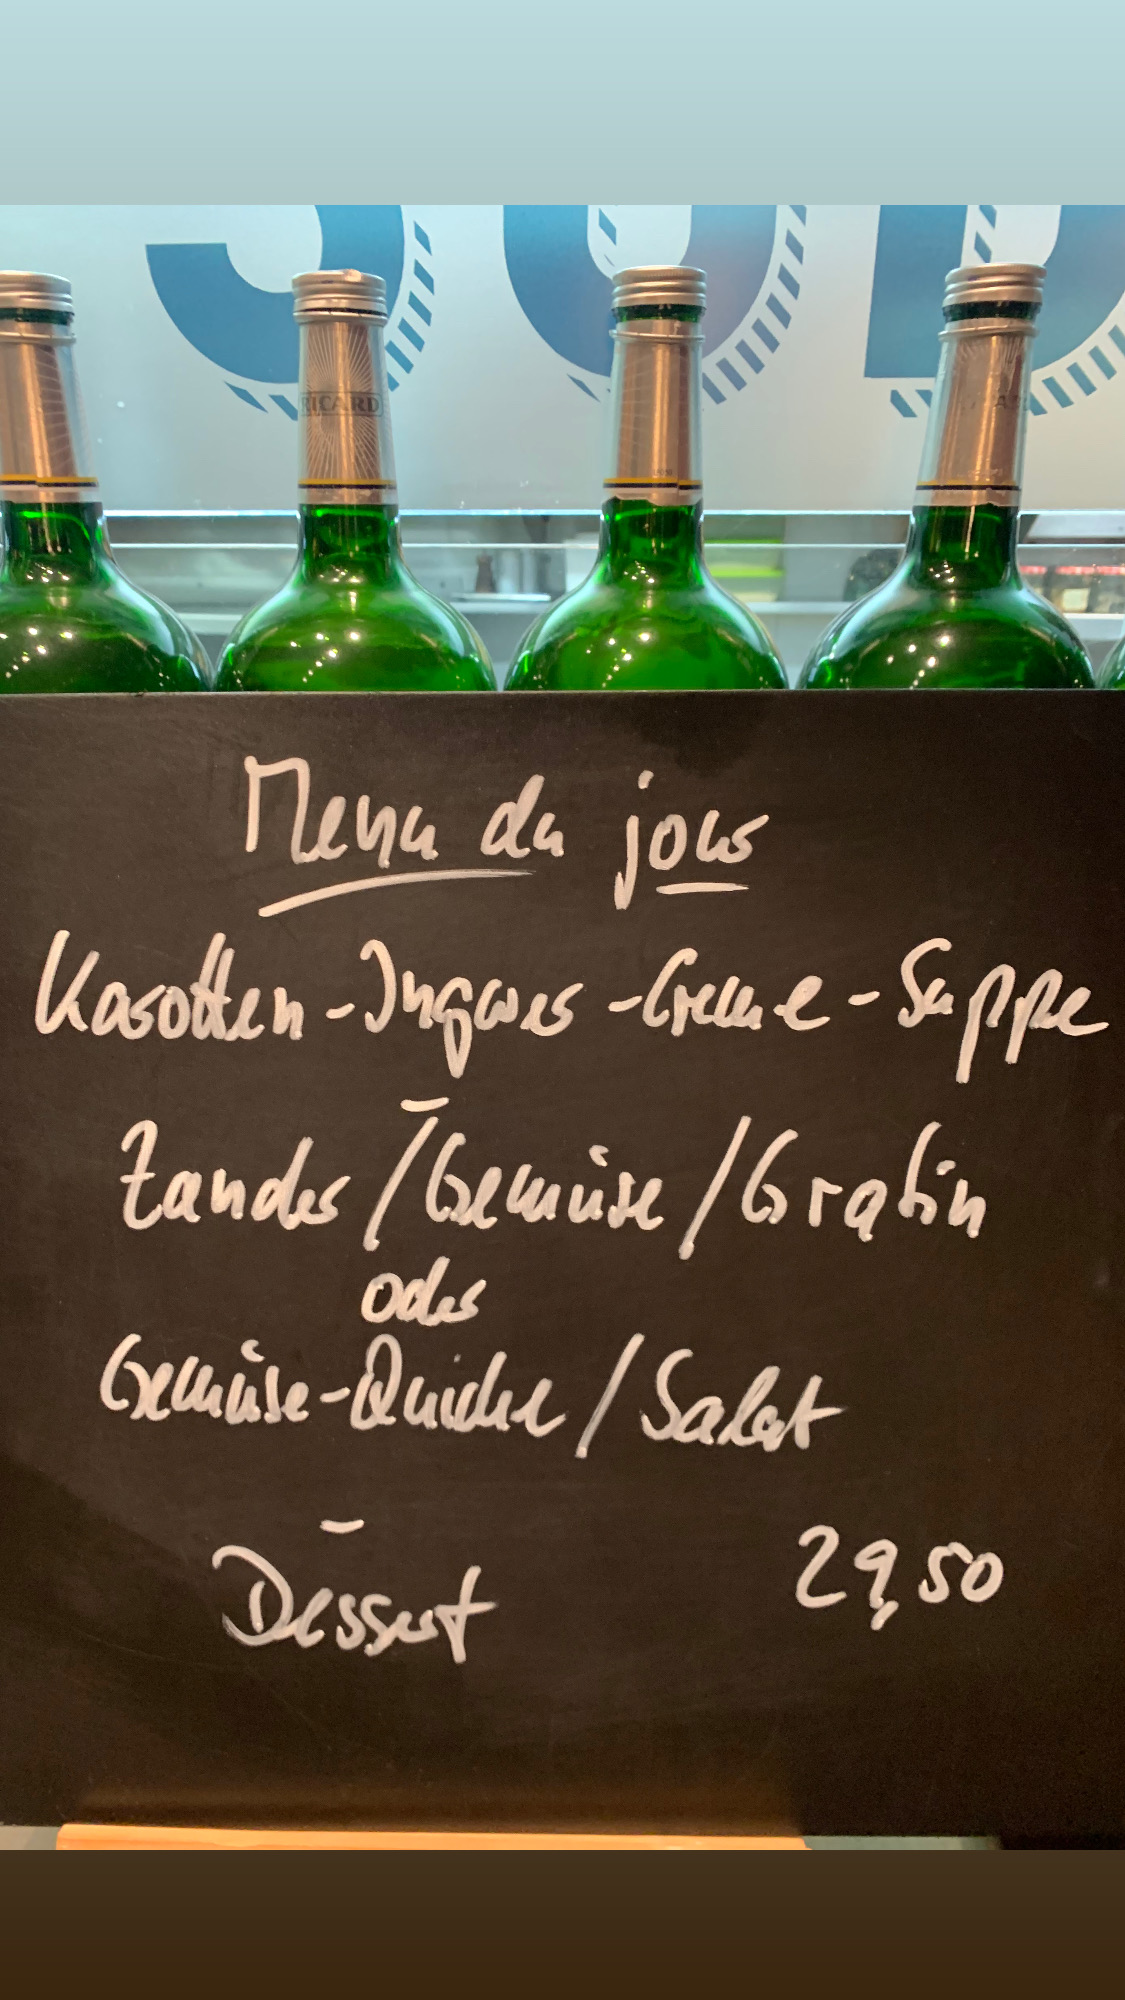 RICARD
Menu du jour
Karotten-Ingwer-Creme-Suppe
-
Zander/Gemüse/Gratin
oder
Gemüse-Quiche/Salat
-
Dessert 29,50